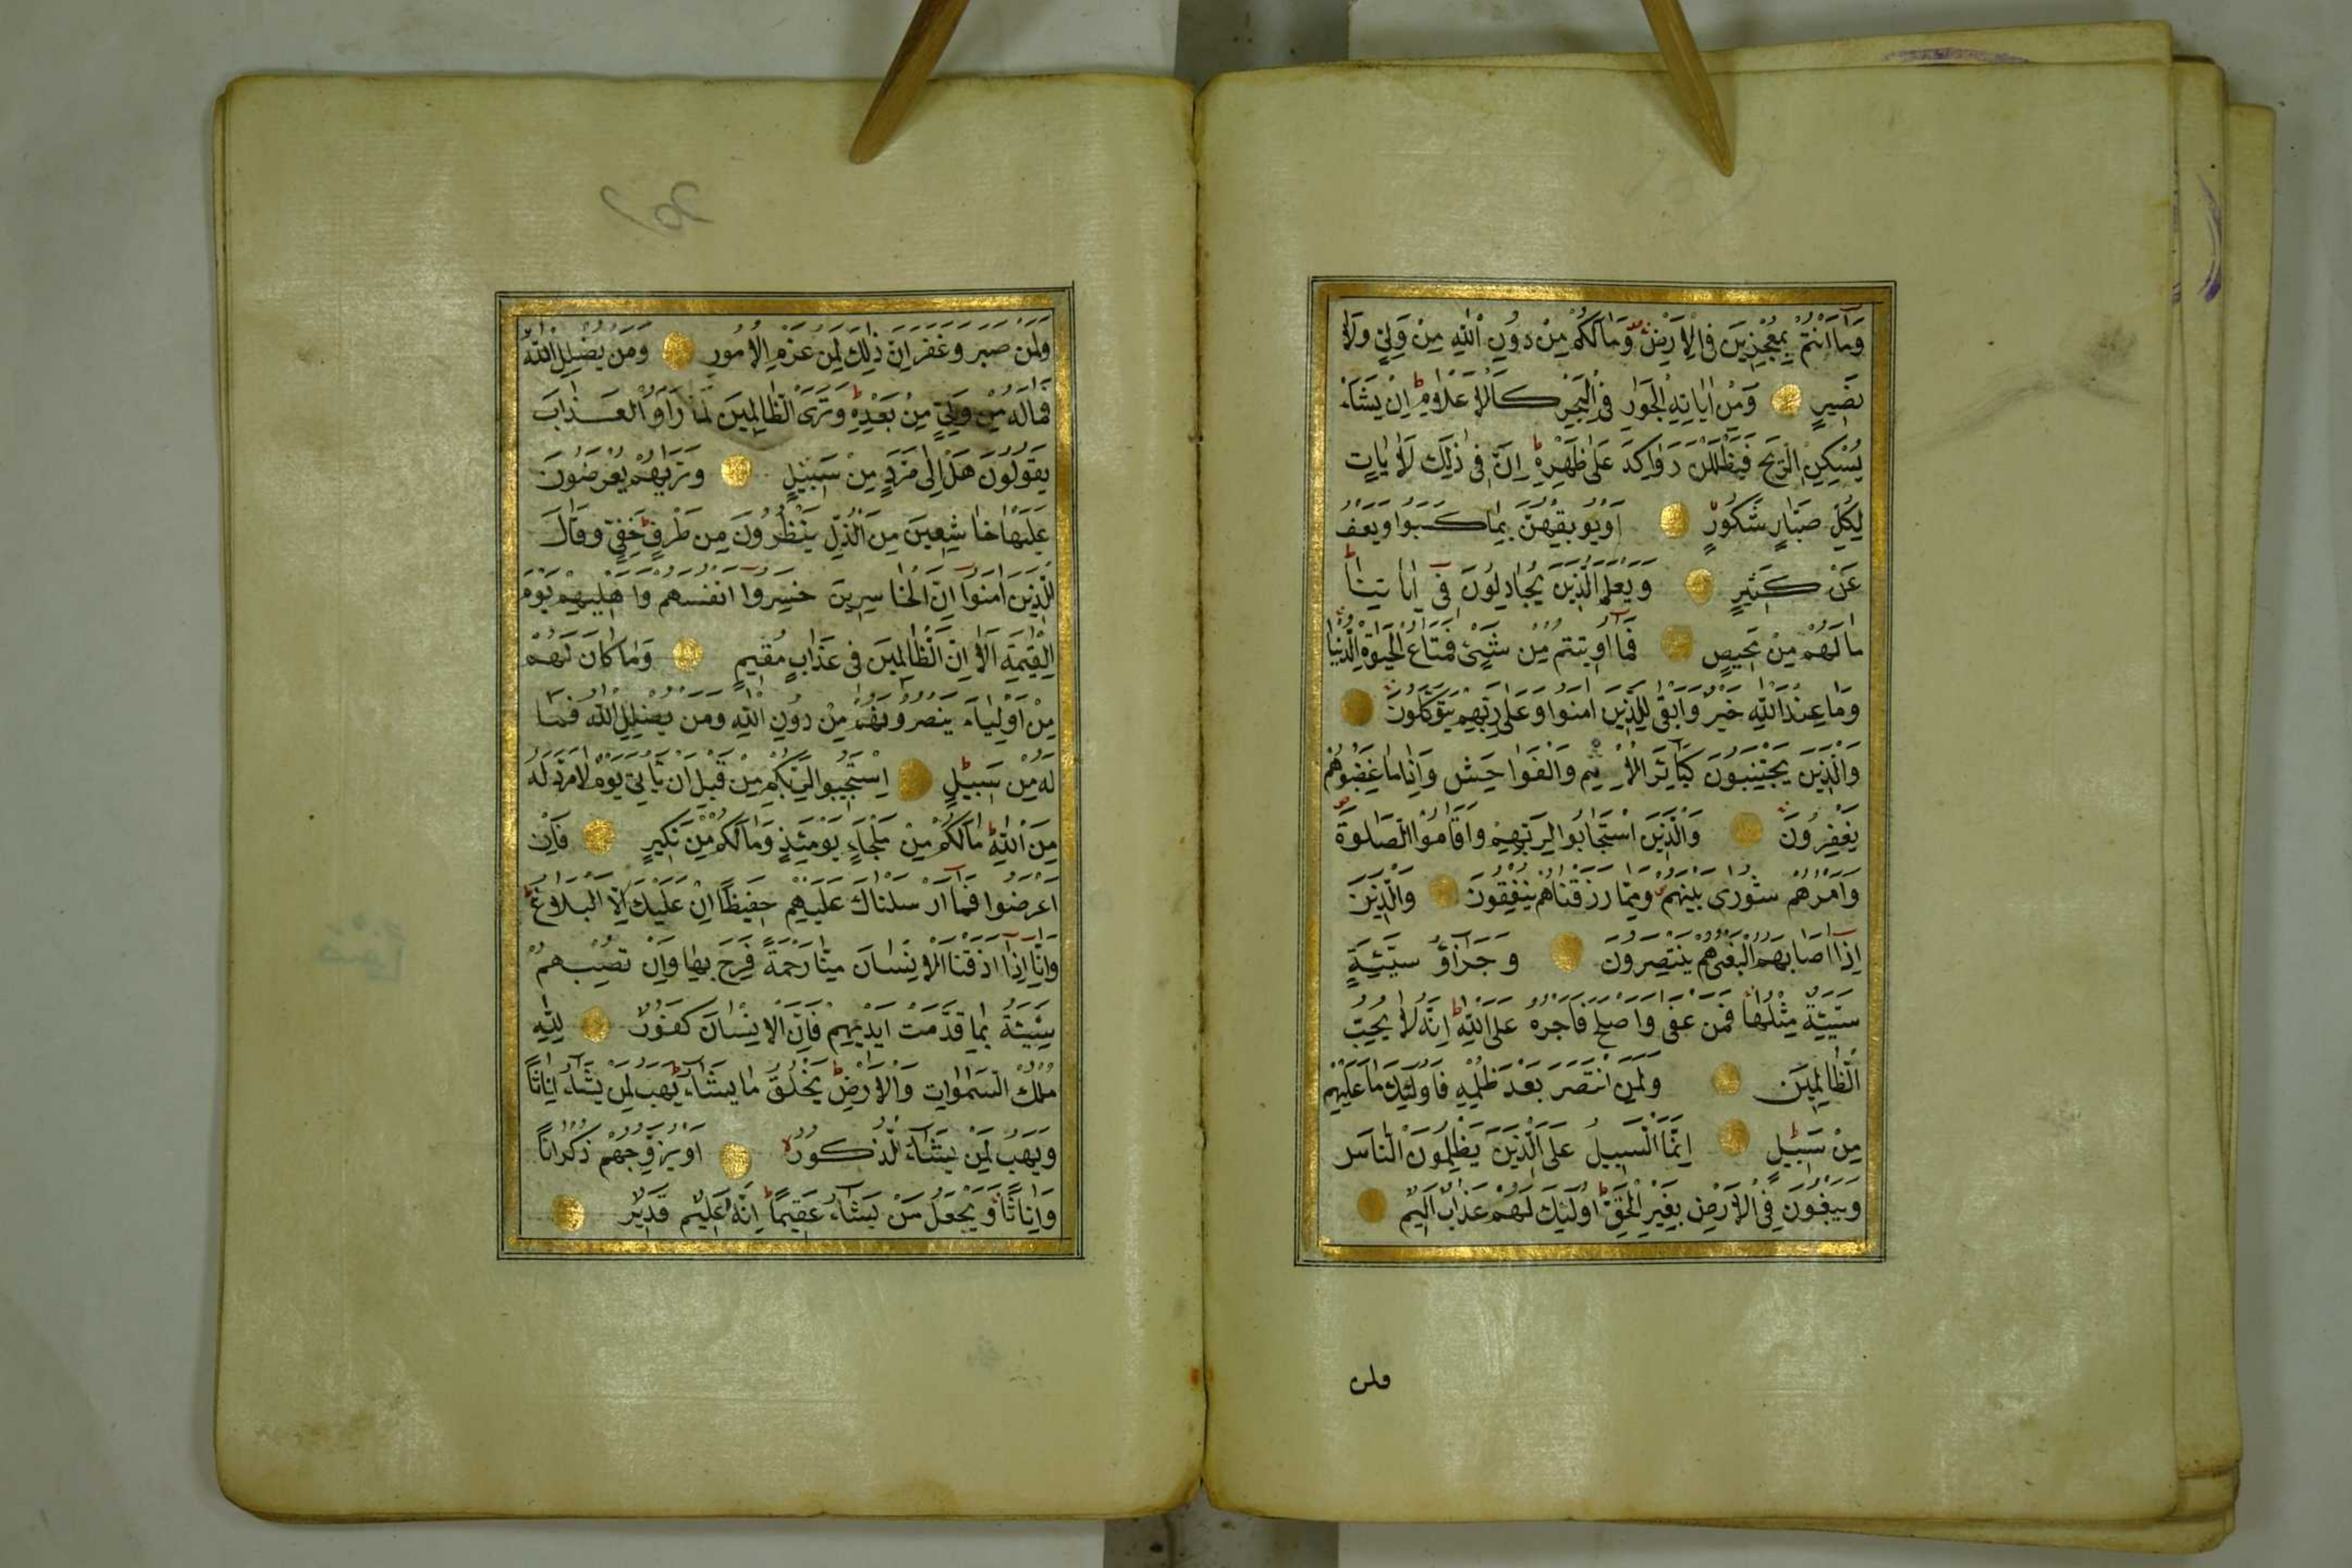 وَمَا اَنْتُمْ بِمُعْجِزِينَ فِي الْاَرْضِ وَمَا لَكُمْ مِنْ دُونِ اللّٰهِ مِنْ وَلِيٍّ وَلَا
نَصِيرٍ وَمِنْ اٰيَاتِهِ الْجَوَارِ فِي الْبَحْرِ كَالْاَعْلَامِ اِنْ يَشَاْ
يُسْكِنِ الرِّيحَ فَيَظْلَلْنَ رَوَاكِدَ عَلٰى ظَهْرِهِ اِنَّ فِي ذٰلِكَ لَاٰيَاتٍ
لِكُلِّ صَبَّارٍ شَكُورٍ اَوْ يُوبِقْهُنَّ بِمَا كَسَبُوا وَيَعْفُ
عَنْ كَثِيرٍ وَيَعْلَمَ الَّذِينَ يُجَادِلُونَ فِي اٰيَاتِنَا
مَا لَهُمْ مِنْ مَحِيصٍ فَمَا اُوتِيتُمْ مِنْ شَيْءٍ فَمَتَاعُ الْحَيٰوةِ الدُّنْيَا
وَمَا عِنْدَ اللّٰهِ خَيْرٌ وَاَبْقٰى لِلَّذِينَ اٰمَنُوا وَعَلٰى رَبِّهِمْ يَتَوَكَّلُونَ
وَالَّذِينَ يَجْتَنِبُونَ كَبَائِرَ الْاِثْمِ وَالْفَوَاحِشَ وَاِذَا مَا غَضِبُوا هُمْ
يَغْفِرُونَ وَالَّذِينَ اسْتَجَابُوا لِرَبِّهِمْ وَاَقَامُوا الصَّلٰوةَ
وَاَمْرُهُمْ شُورٰى بَيْنَهُمْ وَمِمَّا رَزَقْنَاهُمْ يُنْفِقُونَ وَالَّذِينَ
اِذَا اَصَابَهُمُ الْبَغْيُ هُمْ يَنْتَصِرُونَ وَجَزَاؤُ سَيِّئَةٍ
سَيِّئَةٌ مِثْلُهَا فَمَنْ عَفٰى وَاَصْلَحَ فَاَجْرُهُ عَلَى اللّٰهِ اِنَّهُ لَا يُحِبُّ
الظَّالِمِينَ وَلَمَنِ انْتَصَرَ بَعْدَ ظُلْمِهِ فَاُولٰئِكَ مَا عَلَيْهِمْ
مِنْ سَبِيلٍ اِنَّمَا السَّبِيلُ عَلَى الَّذِينَ يَظْلِمُونَ النَّاسَ
وَيَبْغُونَ فِي الْاَرْضِ بِغَيْرِ الْحَقِّ اُولٰئِكَ لَهُمْ عَذَابٌ اَلِيمٌ
ولمن
وَلَمَنْ صَبَرَ وَغَفَرَ اِنَّ ذٰلِكَ لَمِنْ عَزْمِ الْاُمُورِ وَمَنْ يُضْلِلِ اللّٰهُ
فَمَا لَهُ مِنْ وَلِيٍّ مِنْ بَعْدِهِ وَتَرَى الظَّالِمِينَ لَمَّا رَاَوُا الْعَذَابَ
يَقُولُونَ هَلْ اِلٰى مَرَدٍّ مِنْ سَبِيلٍ وَتَرٰيهُمْ يُعْرَضُونَ
عَلَيْهَا خَاشِعِينَ مِنَ الذُّلِّ يَنْظُرُونَ مِنْ طَرْفٍ خَفِيٍّ وَقَالَ
الَّذِينَ اٰمَنُوا اِنَّ الْخَاسِرِينَ خَسِرُوا اَنْفُسَهُمْ وَاَهْلِيهِمْ يَوْمَ
الْقِيٰمَةِ اَلَا اِنَّ الظَّالِمِينَ فِي عَذَابٍ مُقِيمٍ وَمَا كَانَ لَهُمْ
مِنْ اَوْلِيَاءَ يَنْصُرُونَهُمْ مِنْ دُونِ اللّٰهِ وَمَنْ يُضْلِلِ اللّٰهُ فَمَا
لَهُ مِنْ سَبِيلٍ اِسْتَجِيبُوا لِرَبِّكُمْ مِنْ قَبْلِ اَنْ يَاْتِيَ يَوْمٌ لَا مَرَدَّ لَهُ
مِنَ اللّٰهِ مَا لَكُمْ مِنْ مَلْجَاٍ يَوْمَئِذٍ وَمَا لَكُمْ مِنْ نَكِيرٍ فَاِنْ
اَعْرَضُوا فَمَا اَرْسَلْنَاكَ عَلَيْهِمْ حَفِيظًا اِنْ عَلَيْكَ اِلَّا الْبَلَاغُ
وَاِنَّا اِذَا اَذَقْنَا الْاِنْسَانَ مِنَّا رَحْمَةً فَرِحَ بِهَا وَاِنْ تُصِبْهُمْ
سَيِّئَةٌ بِمَا قَدَّمَتْ اَيْدِيهِمْ فَاِنَّ الْاِنْسَانَ كَفُورٌ لِلّٰهِ
مُلْكُ السَّمٰوَاتِ وَالْاَرْضِ يَخْلُقُ مَا يَشَاءُ يَهَبُ لِمَنْ يَشَاءُ اِنَاثًا
وَيَهَبُ لِمَنْ يَشَاءُ الذُّكُورَ اَوْ يُزَوِّجُهُمْ ذُكْرَانًا
وَاِنَاثًا وَيَجْعَلُ مَنْ يَشَاءُ عَقِيمًا اِنَّهُ عَلِيمٌ قَدِيرٌ